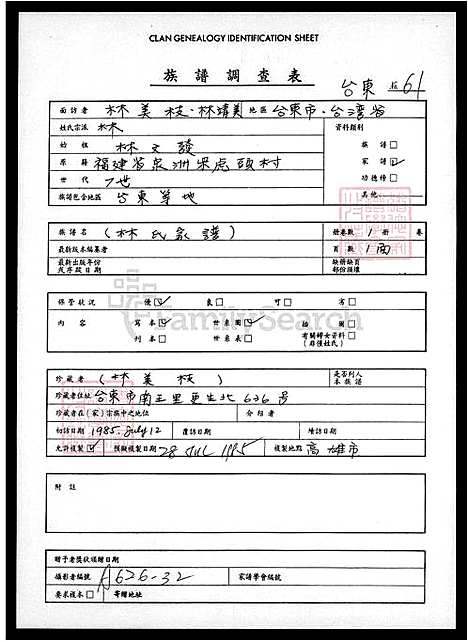 CLAN GENEALOGY IDENTIFICATION SHEET
族譜調查表
台東 61
面訪者 林美枝·林靖美 地區 台東市·台灣省
姓氏宗派 林 資料類別
始祖 林文發 族譜□
原籍 福建省泉洲 虎頭村 家譜☑
世代 7世 功德榜□
族譜包含地區 台東等地 其他
族譜名 (林氏家譜) 冊卷數 1 冊 卷
最新版本編纂者 頁數 1面
最新出版年份或序跋日期 缺冊缺頁部份損壞
保管狀況 優☑ 良□ 可□ 劣□
內容 寫本☑ 世系圖☑ 插圖□
刊本□ 世系表□ 有關婦女資料(非僅姓氏)□
珍藏者 (林美枝) 是否列入本族譜
珍藏者住址 台東市南王里更生北 636號
珍藏者在(家)宗族中之地位 介紹者
初訪日期 1985. July 12 覆訪日期 陸訪日期
允許複製☑ 預擬複製日期 28 JUL 1985 複製地點 高雄市
附註
贈予者獎狀頒贈日期
攝影者編號 A626-32 家譜學會編號
要求複本□ 寄贈地址
FamilySearch